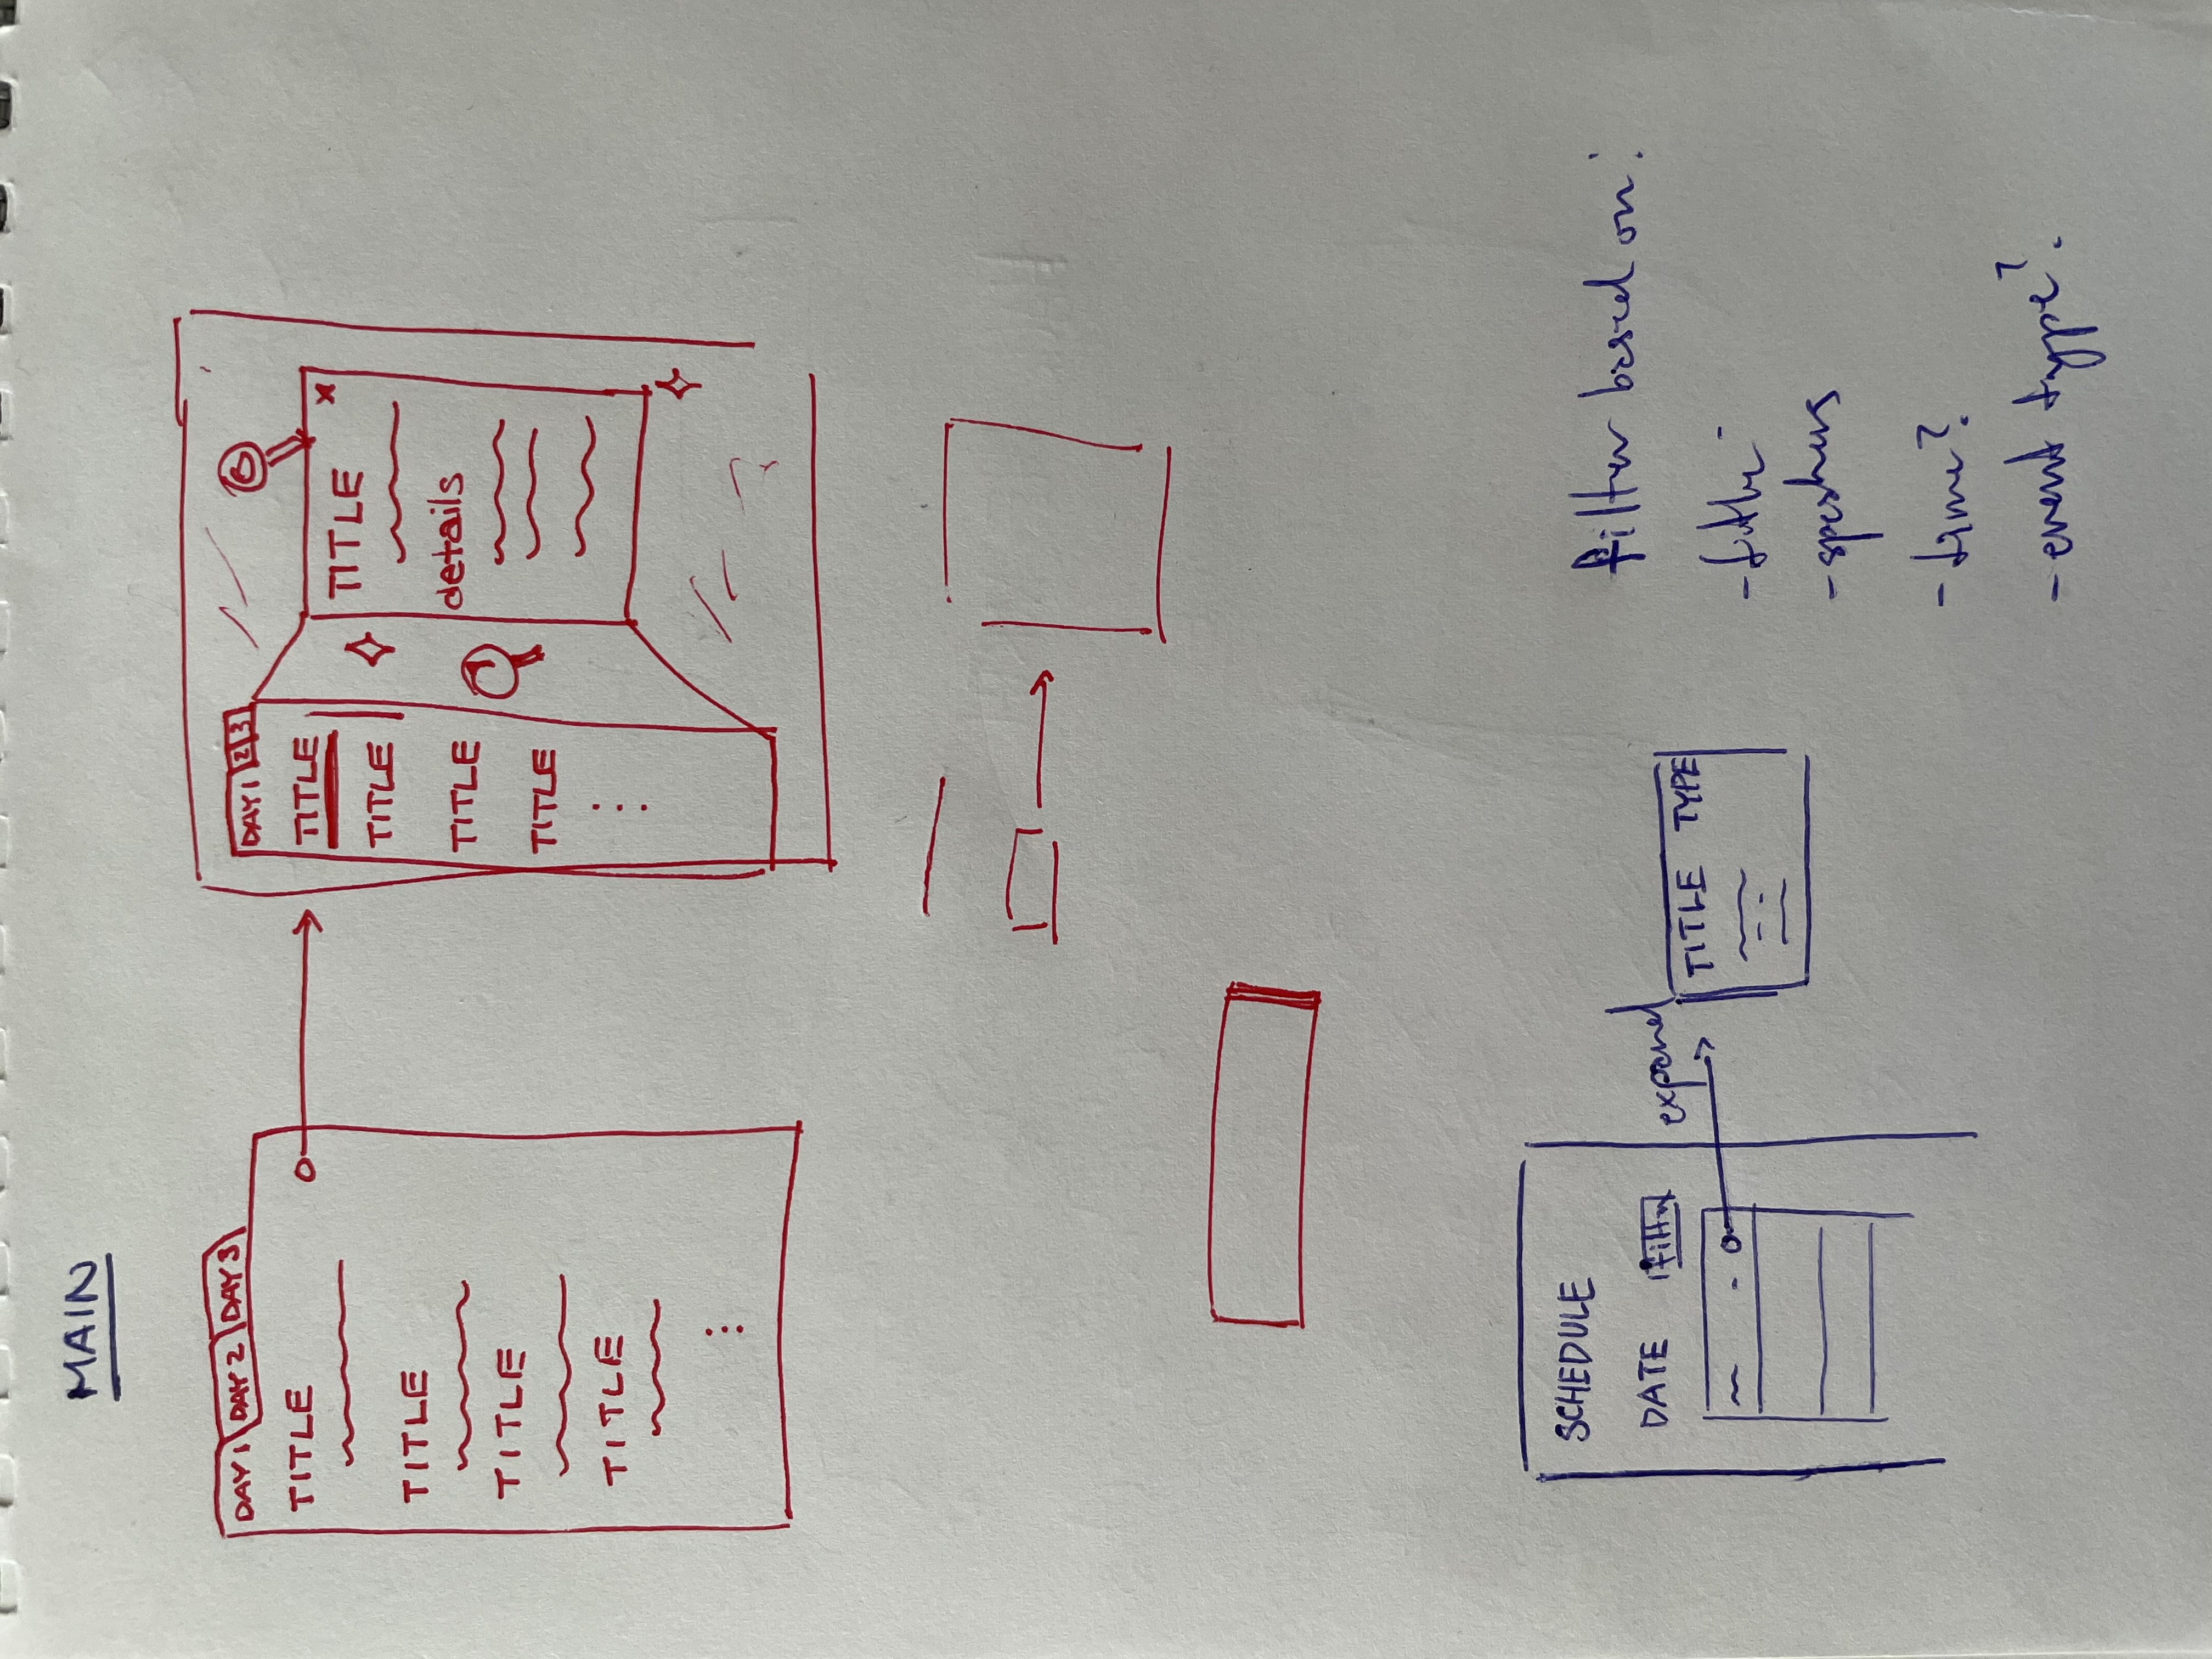 MAIN
DAY 1 DAY 2 DAY 3
TITLE
TITLE
TITLE
TITLE
DAY 1 2 3
TITLE
TITLE
TITLE
TITLE
TITLE x
details
SCHEDULE
DATE filter
expand
TITLE TYPE
filter based on:
- title
- speakers
- time?
- event type?